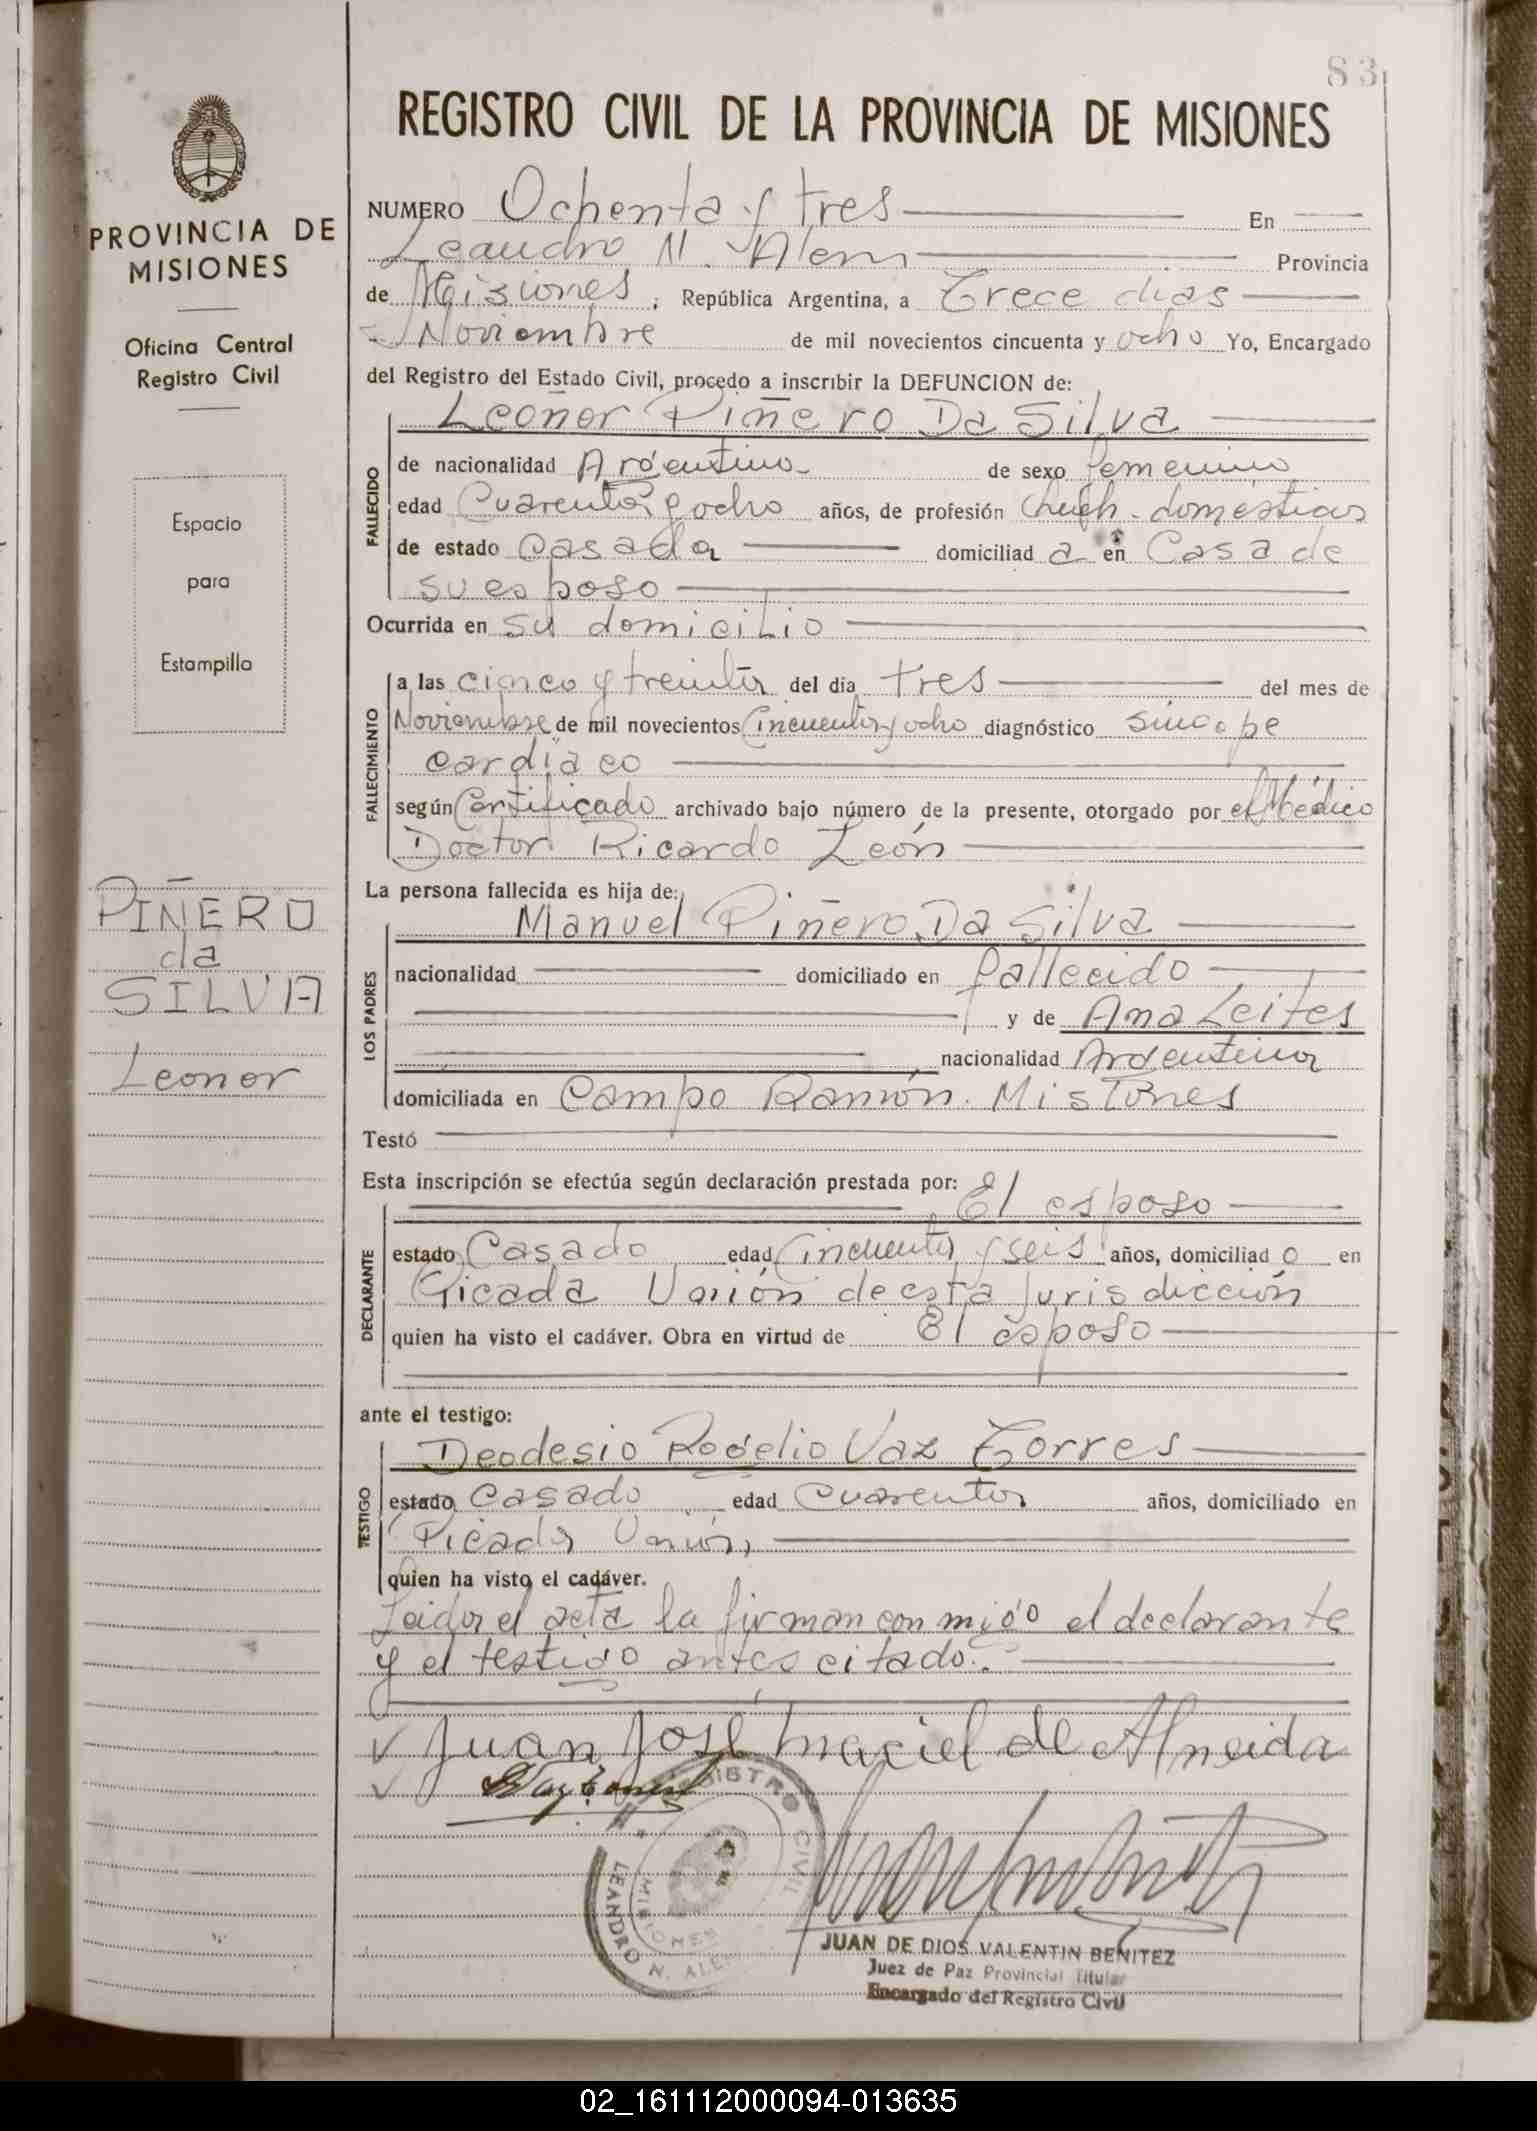 83
REGISTRO CIVIL DE LA PROVINCIA DE MISIONES
PROVINCIA DE
MISIONES
Oficina Central
Registro Civil
Espacio
para
Estampilla
PIÑERO
da
SILVA
Leonor
NUMERO Ochenta y tres En
Leandro N. Alem Provincia
de Misiones, República Argentina, a Trece dias
Noviembre de mil novecientos cincuenta y ocho Yo, Encargado
del Registro del Estado Civil, procedo a inscribir la DEFUNCION de:
Leoñor Piñero Da Silva
FALLECIDO
de nacionalidad Argentino de sexo femenino
edad Cuarenta y ocho años, de profesión domésticos
de estado casada domiciliad a en Casa de
su esposo
Ocurrida en su domicilio
FALLECIMIENTO
a las cinco y treinta del día tres del mes de
Noviembre de mil novecientos Cincuenta y ocho diagnóstico sincope
cardíaco
según Certificado archivado bajo número de la presente, otorgado por el Médico
Doctor Ricardo León
La persona fallecida es hija de:
LOS PADRES
Manuel Piñero Da Silva
nacionalidad domiciliado en fallecido
y de Ana Leites
nacionalidad Argentina
domiciliada en Campo Ramón. Misiones
Testó
Esta inscripción se efectúa según declaración prestada por: El esposo
DECLARANTE
estado Casado edad Cincuenta y seis años, domiciliad o en
Picada Unión de esta jurisdicción
quien ha visto el cadáver. Obra en virtud de El esposo
ante el testigo:
TESTIGO
Deodesio Rogelio Vaz Torres
estado Casado edad Cuarenta años, domiciliado en
Picada Unión,
quien ha visto el cadáver.
Leida el acta la firman conmigo el declarante
y el testigo antes citado.
Juan José maciel de Almeida
REGISTRO CIVIL
LEANDRO N. ALEM
MISIONES
JUAN DE DIOS VALENTIN BENITEZ
Juez de Paz Provincial Titular
Encargado del Registro Civil
02_161112000094-013635